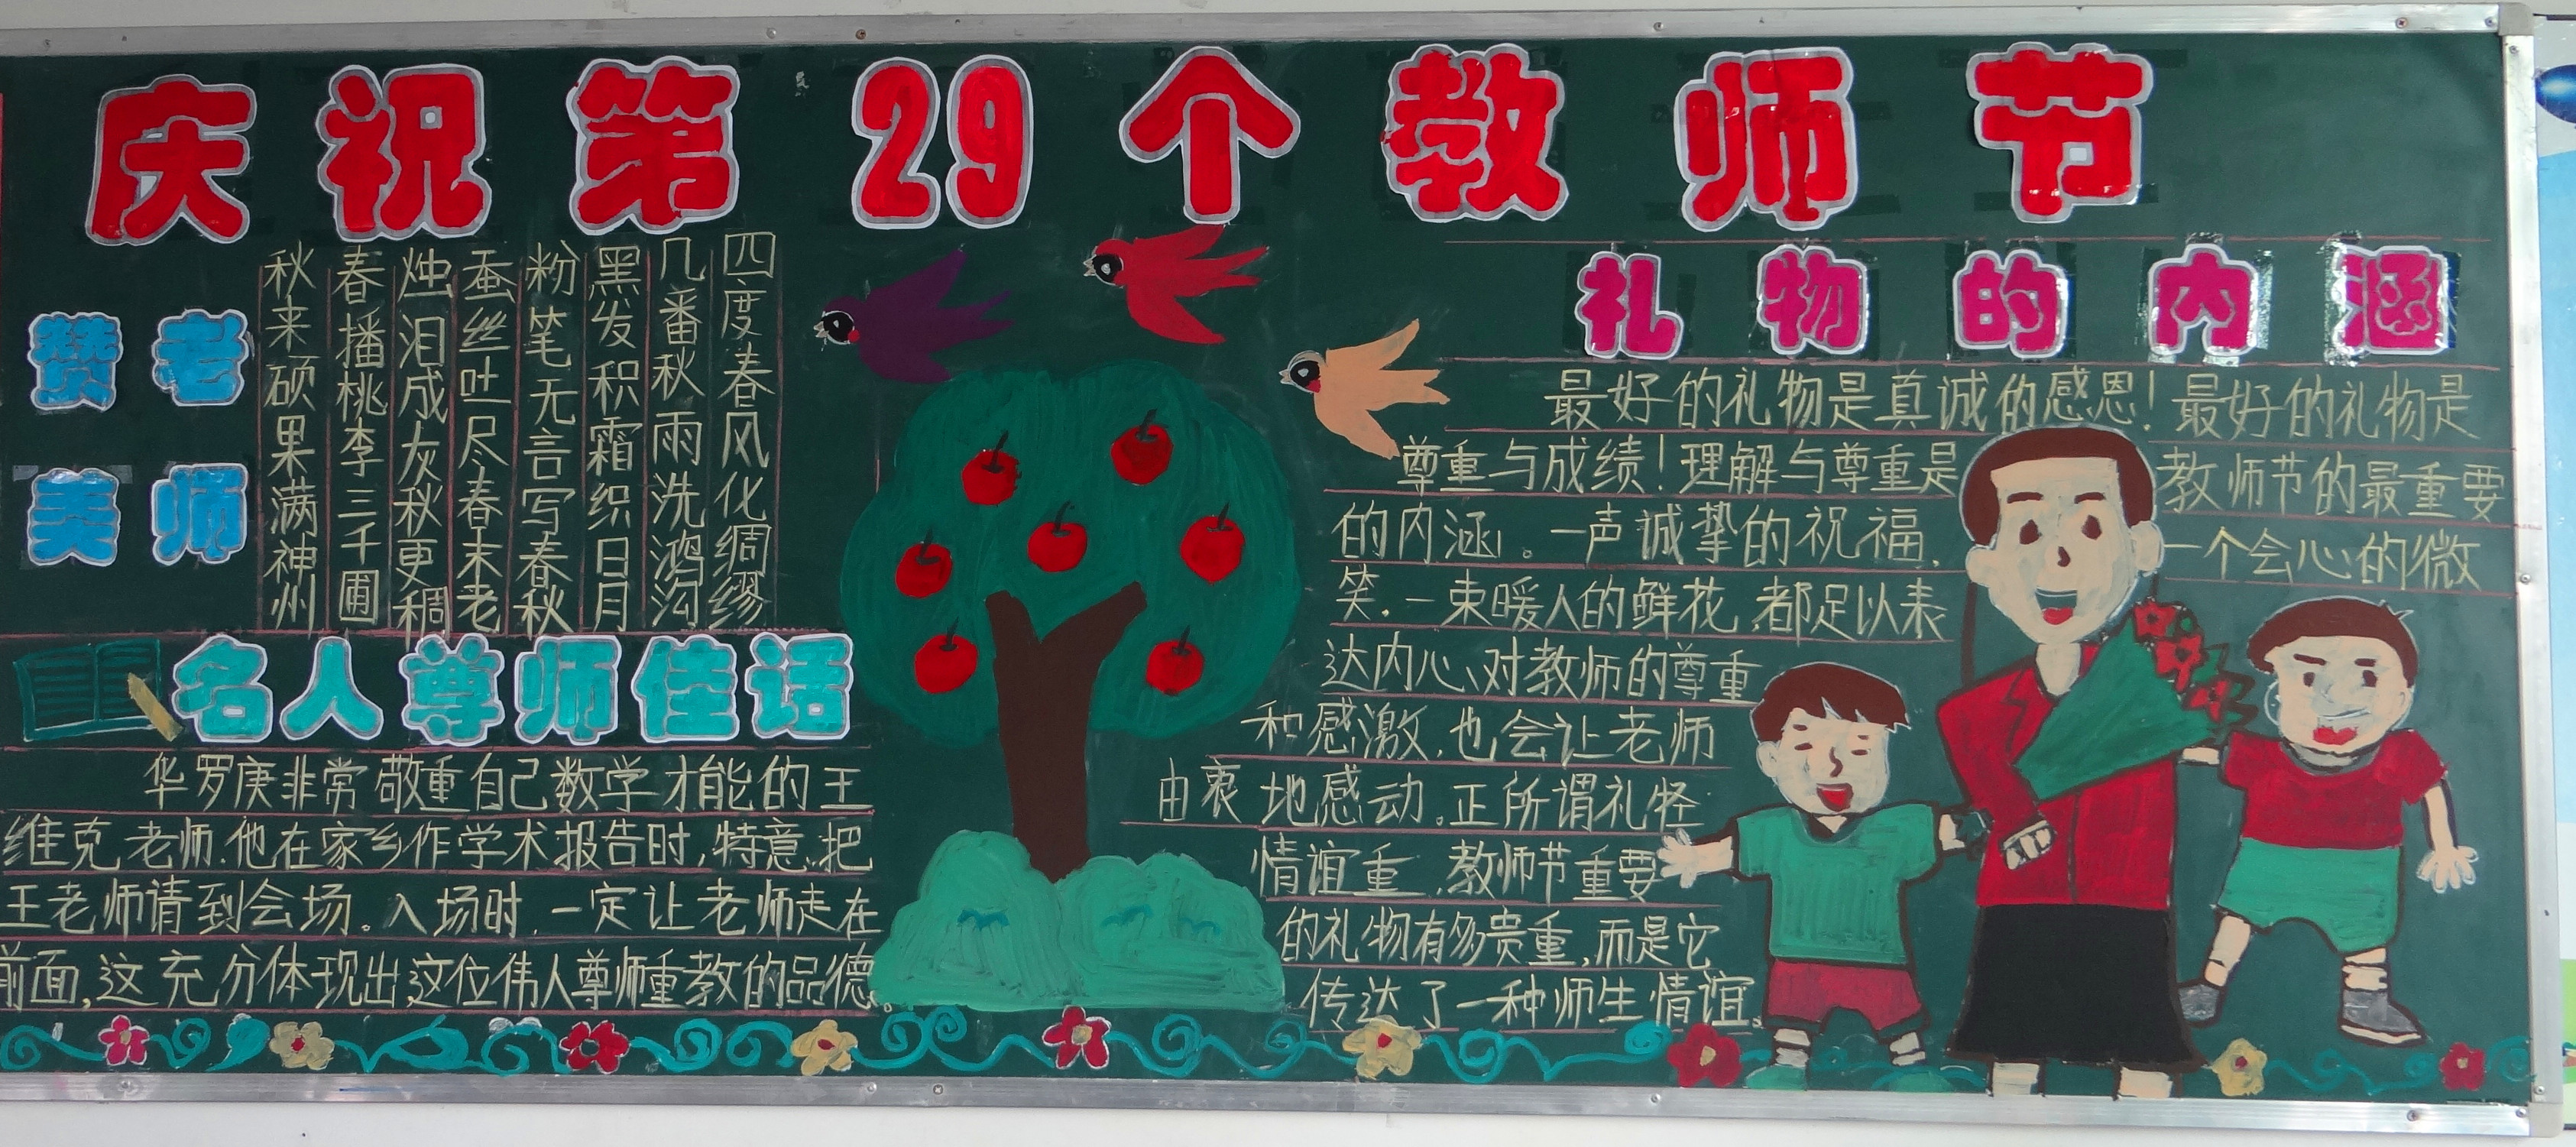 庆祝第29个教师节
赞老
美师
四度春风化绸缪
几番秋雨洗鸿沟
黑发积霜织日月
粉笔无言写春秋
蚕丝吐尽春未老
烛泪成灰秋更稠
春播桃李三千圃
秋来硕果满神州
名人尊师佳话
华罗庚非常敬重自己数学才能的王
维克老师.他在家乡作学术报告时,特意把
王老师请到会场.入场时,一定让老师走在
前面,这充分体现出这位伟人尊师重教的品德。
礼物的内涵
最好的礼物是真诚的感恩!最好的礼物是
尊重与成绩!理解与尊重是教师节的最重要
的内涵。一声诚挚的祝福,一个会心的微
笑.一束暖人的鲜花,都足以表
达内心对教师的尊重
和感激,也会让老师
由衷地感动.正所谓礼轻
情谊重.教师节重要
的礼物有多贵重,而是它
传达了一种师生情谊。